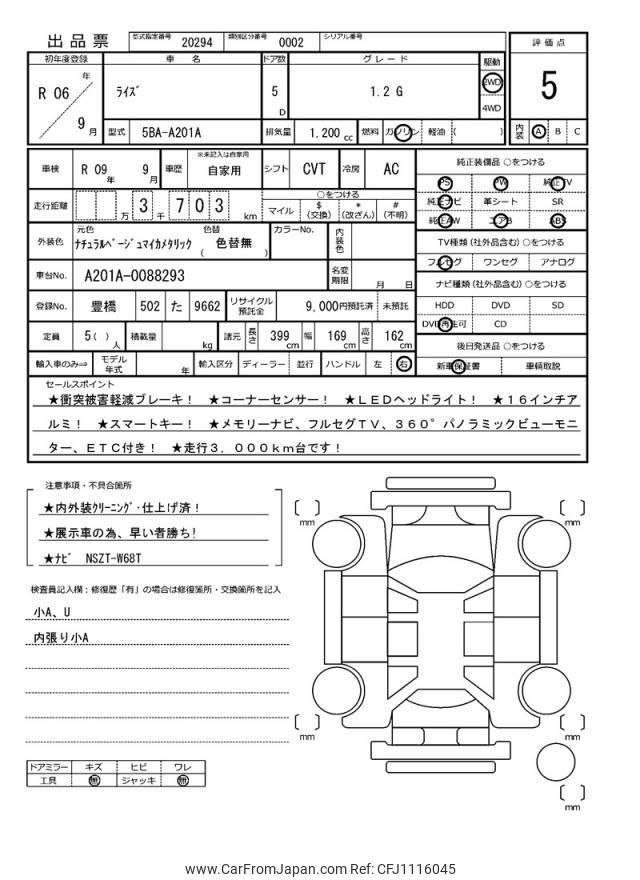 出品票 型式指定番号 20294 類別区分番号 0002 シリアル番号
評価点
5
内装 A B C
初年度登録 車名 ドア数 グレード 駆動
R 06 年 9 月 ライズ 5 D 1.2 G 2WD 4WD
型式 5BA-A201A 排気量 1.200 cc 燃料 ガソリン 軽油 ( )
車検 R 09 年 9 月 車歴 ※未記入は自家用 自家用 シフト CVT 冷房 AC
走行距離 万 3 千 7 0 3 km ○をつける
マイル $ (交換) * (改ざん) # (不明)
外装色 元色 ナチュラルベージュマイカメタリック 色替 ( 色替無 ) カラーNo. 内装色
車台No. A201A-0088293 名変期限 月 日
登録No. 豊橋 502 た 9662 リサイクル預託金 9,000円預託済 未預託
定員 5( ) 人 積載量 kg 諸元 長さ 399 cm 幅 169 cm 高さ 162 cm
輸入車のみ⇒ モデル年式 年 輸入区分 ディーラー 並行 ハンドル 左 右
純正装備品 ○をつける
PS PW 純正TV
純正ナビ 革シート SR
純正AW エアB ABS
TV種類 (社外品含む) ○をつける
フルセグ ワンセグ アナログ
ナビ種類 (社外品含む) ○をつける
HDD DVD SD
DVD再生可 CD
後日発送品 ○をつける
新車保証書 車輌取説
セールスポイント
★衝突被害軽減ブレーキ! ★コーナーセンサー! ★LEDヘッドライト! ★16インチア
ルミ! ★スマートキー! ★メモリーナビ、フルセグTV、360°パノラミックビューモニ
ター、ETC付き! ★走行3,000km台です!
注意事項・不具合箇所
★内外装クリーニング・仕上げ済!
★展示車の為、早い者勝ち!
★ナビ NSZT-W68T
検査員記入欄:修復歴「有」の場合は修復箇所・交換箇所を記入
小A、U
内張り小A
ドアミラー キズ ヒビ ワレ
工具 無 ジャッキ 無
mm
mm
mm
mm
mm
www.CarFromJapan.com Ref: CFJ1116045